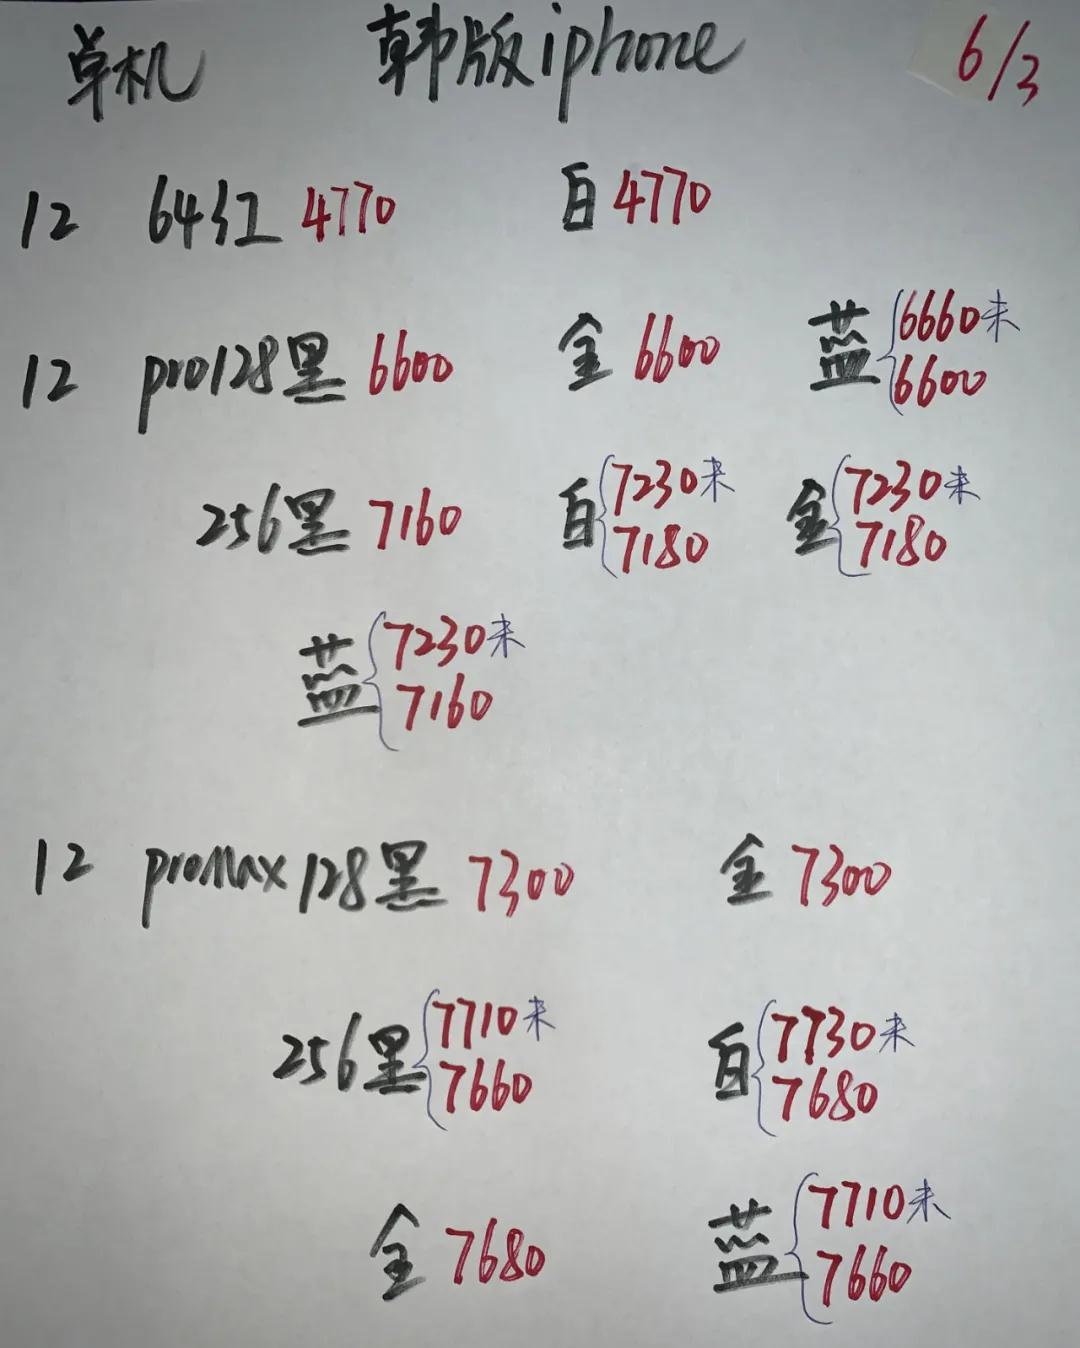 单机 韩版iphone 6/3
12 64红 4770 白 4770
12 pro128黑 6600 金 6600 蓝 6660未
6600
256黑 7160 白 7230未 金 7230未
7180 7180
蓝 7230未
7160
12 proMax 128黑 7300 金 7300
256黑 7710未 白 7730未
7660 7680
金 7680 蓝 7710未
7660